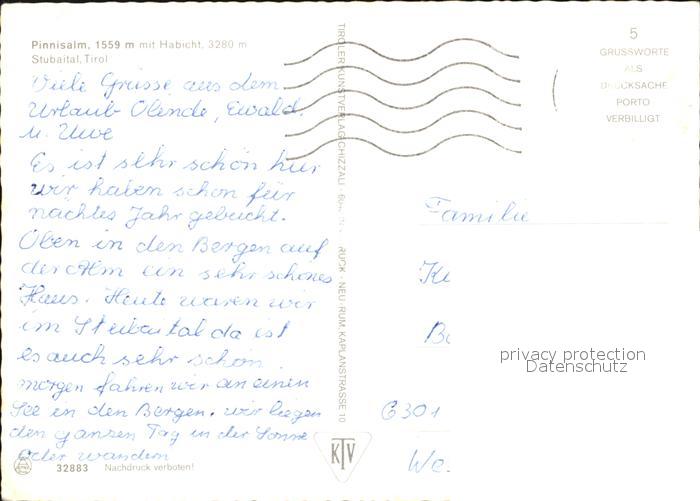 Pinnisalm, 1559 m mit Habicht, 3280 m
Stubaital, Tirol
Viele Grüsse aus dem
Urlaub Olende, Ewald.
u. Uwe
Es ist sehr schön hier
wir haben schon für
nächtes Jahr gebucht.
Oben in den Bergen auf
der Alm ein sehr schönes
Haus. Heute waren wir
im Stubaital da ist
es auch sehr schön
morgen fahren wir an einen
See in den Bergen. wir liegen
den ganzen Tag in der Sonne
oder wandern
32883 Nachdruck verboten!
TIROLER KUNSTVERLAG CHIZZALI
DRUCK · NEU-RUM, KAPLANSTRASSE 10
KTV
5
GRUSSWORTE
ALS
DRUCKSACHE
PORTO
VERBILLIGT
Familie
privacy protection
Datenschutz
6301
We.